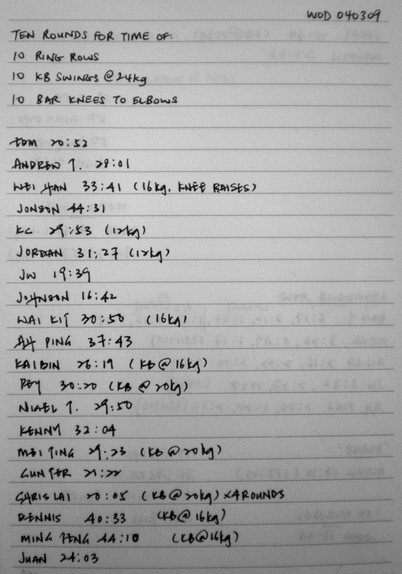 WOD 040309
TEN ROUNDS FOR TIME OF:
10 RING ROWS
10 KB SWINGS @ 24kg
10 BAR KNEES TO ELBOWS
TOM 20:52
ANDREW T. 28:01
WEI HAN 33:41 (16kg, KNEE RAISES)
JONSON 44:31
KC 29:53 (12kg)
JORDAN 31:27 (12kg)
JW 19:39
JOHNSON 16:42
WAI KIT 30:50 (16kg)
AH PING 37:43
KAIBIN 26:19 (KB @ 16kg)
30:20 (KB @ 20kg)
NIGEL T. 29:50
KENNY 32:04
MEI TING 29:23 (KB @ 20kg)
GUNTER 21:22
CHRIS LAI 20:05 (KB @ 20kg) x4 ROUNDS
DENNIS 40:33 (KB @ 16kg)
MING FENG 44:10 (KB @ 16kg)
JUAN 24:03